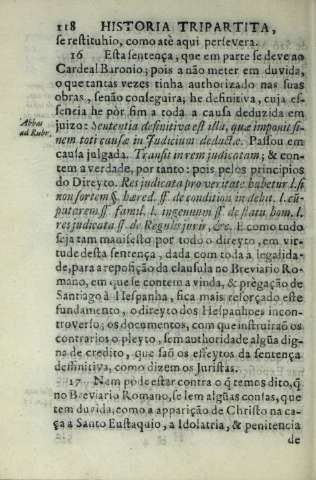 118 HISTORIA TRIPARTITA,
se restituhio, como atè aqui persevera.
16 Esta sentença, que em parte se deve ao
Cardeal Baronio; pois a não meter em duvida,
o que tantas vezes tinha authorizado nas suas
obras, senão conseguira; he definitiva, cuja es-
sencia he pòr fim a toda a causa deduzida em
Abbas
ad Rubr.
juizo: Sententia definitiva est illa, quæ imponit fi-
nem toti causæ in Judicium deductæ. Passou em
causa julgada. Transit in rem judicatam; & con-
tem a verdade, por tanto: pois pelos principios
do Direyto. Res judicata pro veritate habetur l. si
non sortem §. hæred. ff. de condition in debit. l. cū
putarem ff. famil. l. ingenuum ff. de statu hom. l.
res judicata ff. de Regulis juris, &c. E como tudo
seja tam manifesto por todo o direyto, em vir-
tude desta sentença, dada com toda a legalida-
de, para a reposição da clausula no Breviario Ro-
mano, em que se contem a vinda, & prègação de
Santiago à Hespanha, fica mais reforçado este
fundamento, o direyto dos Hespanhoes incon-
troverso; os documentos, com que instruiraõ os
contrarios o pleyto, sem authoridade algūa dig-
na de credito, que saõ os effeytos da sentença
definitiva, como dizem os Juristas.
17 Nem pòde estar contra o q̃ temos dito, q̃
no Breviario Romano, se lem algūas cousas, que
tem duvida, como a apparição de Christo na ca-
ça a Santo Eustaquio, a Idolatria, & penitencia
de